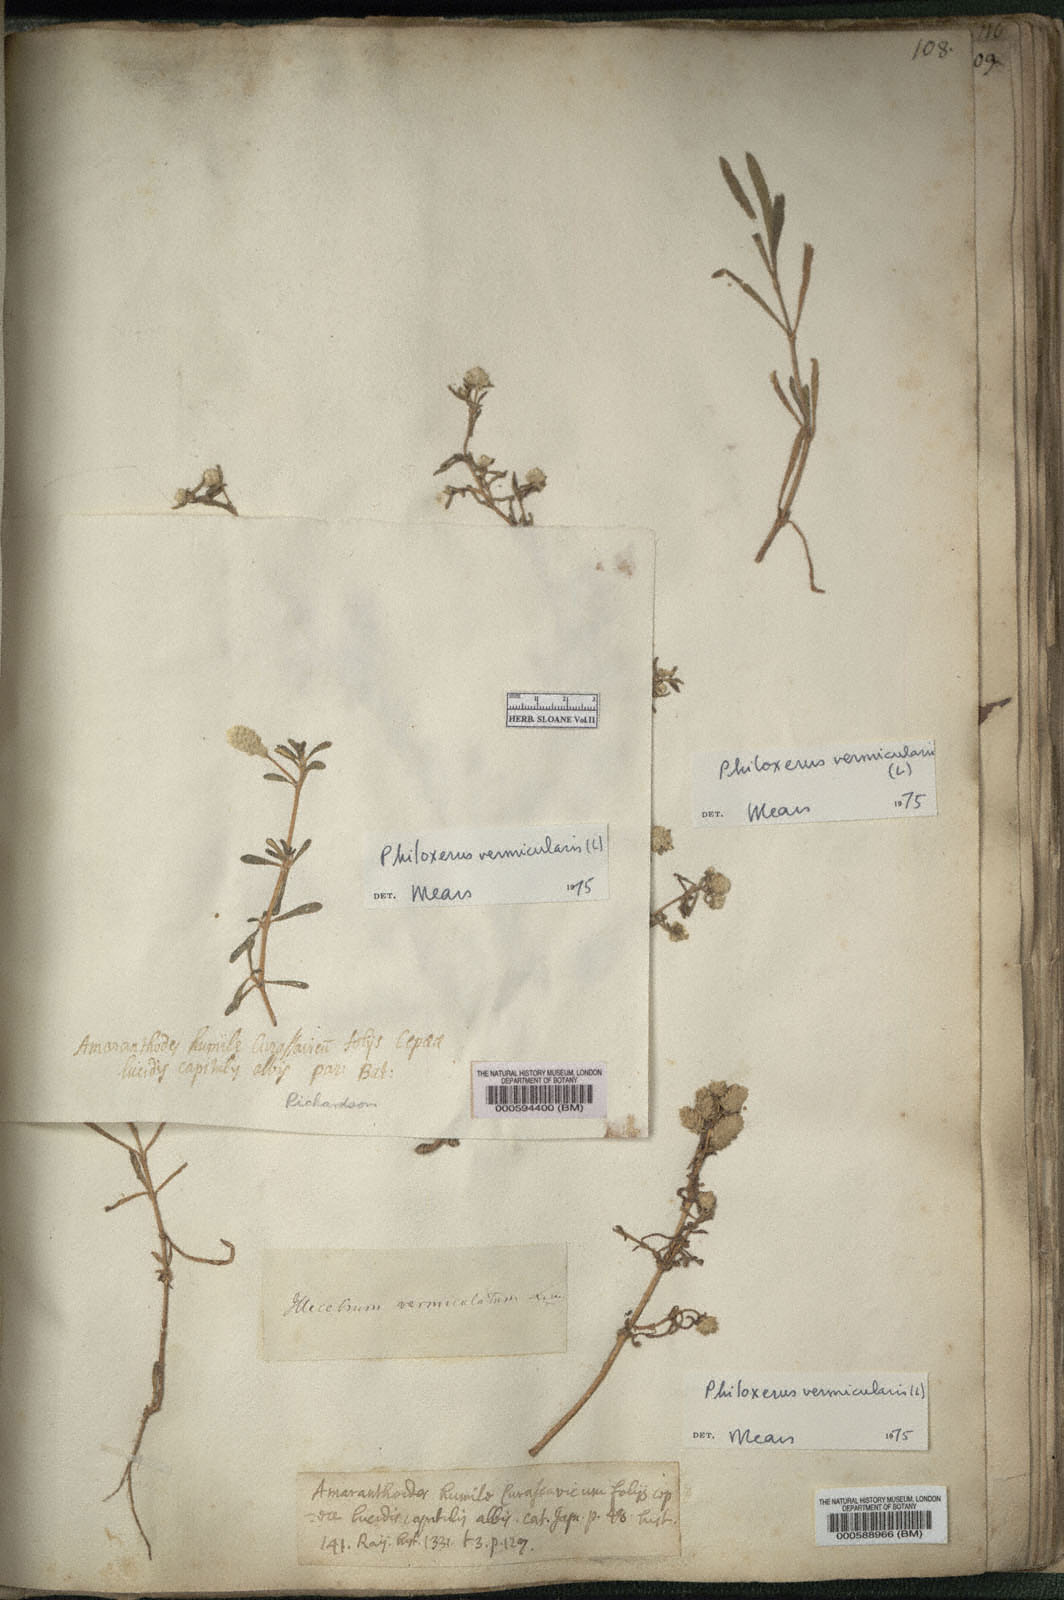 108.
110
09.
HERB. SLOANE Vol II
Philoxerus vermicularis
(L)
DET. Mears 1975
Philoxerus vermicularis (L)
DET. Mears 1975
Amaranthodes humile Curassavicu folijs Cepææ
lucidis capitulis albis par: Bat:
Richardson
THE NATURAL HISTORY MUSEUM, LONDON
DEPARTMENT OF BOTANY
000594400 (BM)
Illecebrum vermiculatum Linn.
Philoxerus vermicularis (L)
DET. Mears 1975
Amaranthoides humile Curassavicum folijs cep
-ææ lucidis capitulis albis. cat. Jam. p. 48. hist.
141. Raij. hist. 1331. t 3. p. 129.
THE NATURAL HISTORY MUSEUM, LONDON
DEPARTMENT OF BOTANY
000588966 (BM)